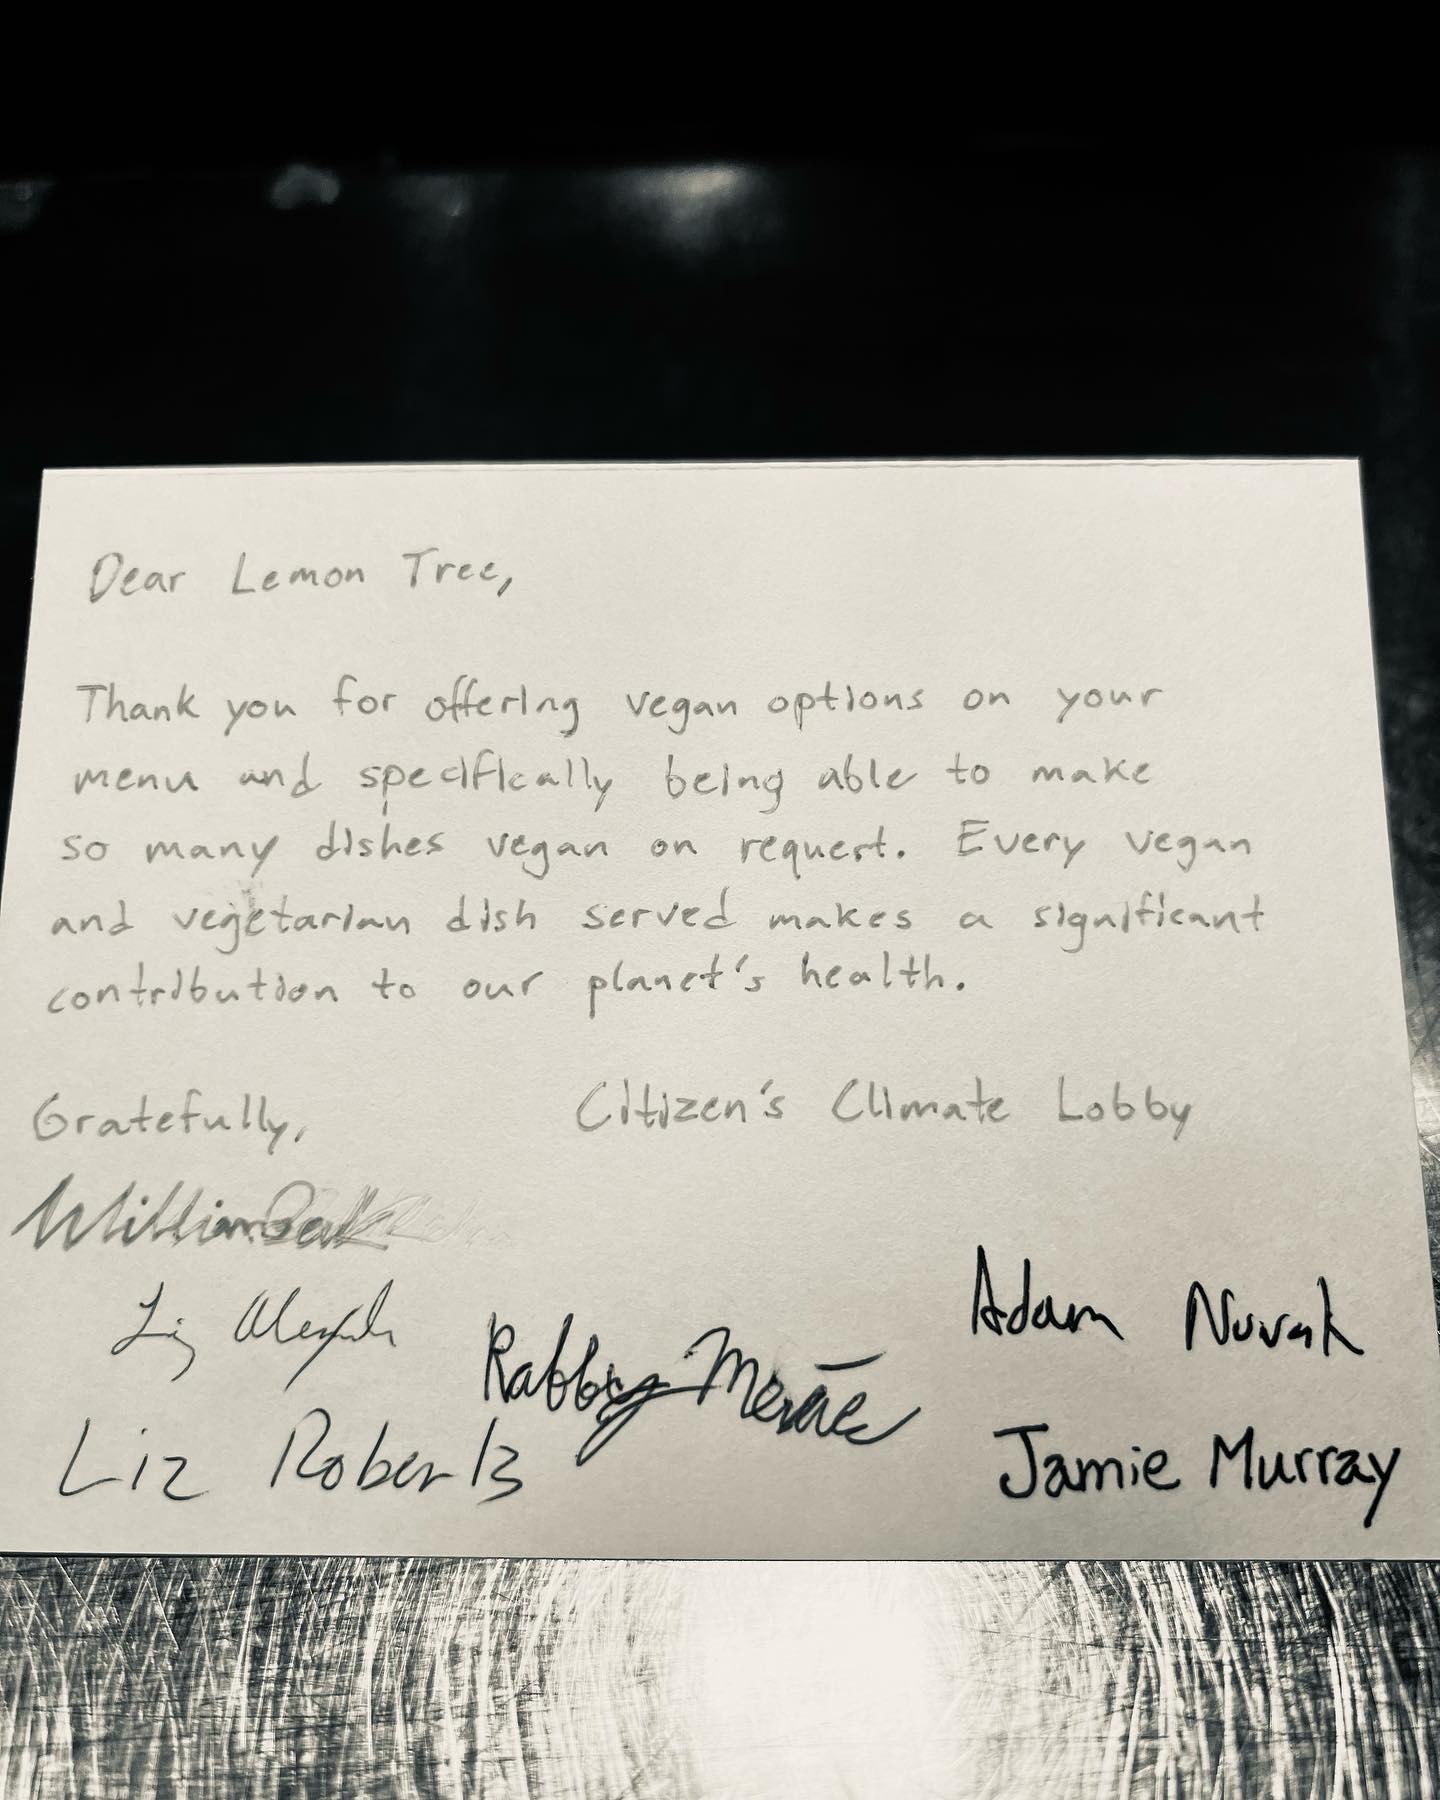 Dear Lemon Tree,
Thank you for offering vegan options on your
menu and specifically being able to make
so many dishes vegan on request. Every vegan
and vegetarian dish served makes a significant
contribution to our planet's health.
Gratefully,
Citizen's Climate Lobby
William
Liz
Adam Novak
Liz Roberts
Jamie Murray